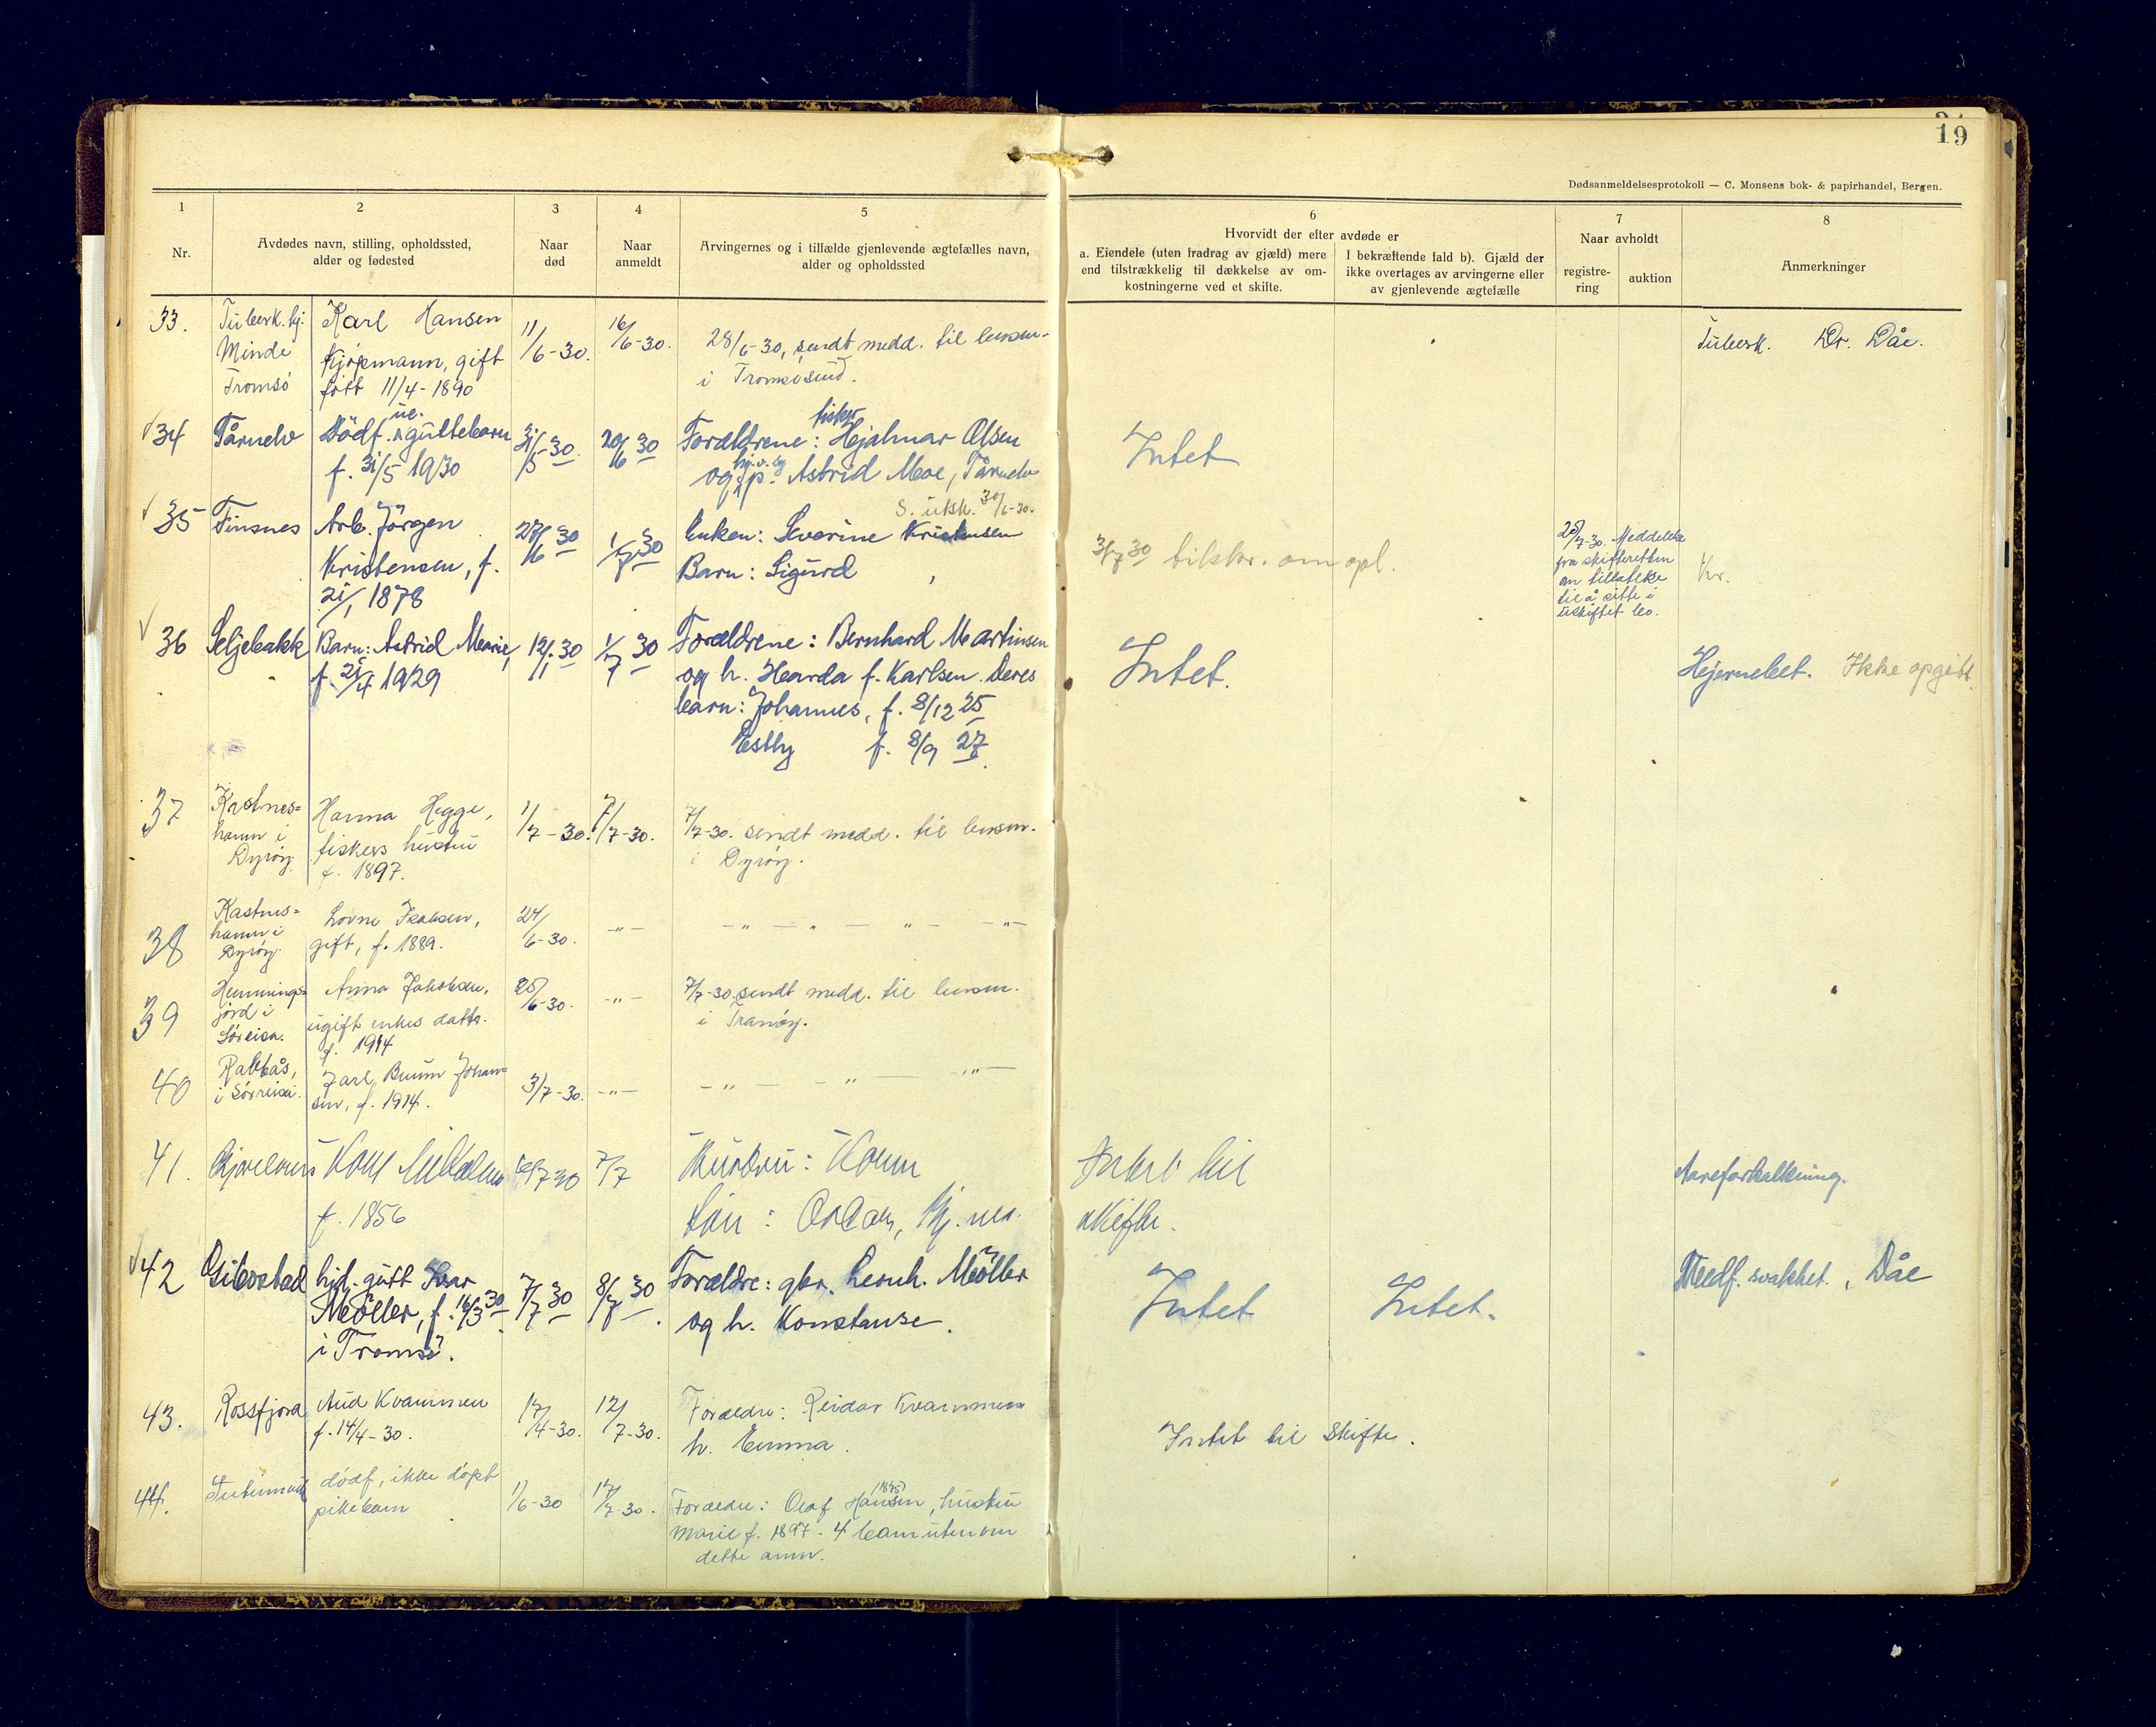 19
Dødsanmeldelsesprotokoll — C. Monsens bok- & papirhandel, Bergen.
1
Nr.
2
Avdødes navn, stilling, opholdssted,
alder og fødested
3
Naar
død
4
Naar
anmeldt
5
Arvingernes og i tilfælde gjenlevende ægtefælles navn,
alder og opholdssted
6
Hvorvidt der efter avdøde er
a. Eiendele (uten fradrag av gjæld) mere
end tilstrækkelig til dækkelse av om-
kostningerne ved et skifte.
I bekræftende fald b). Gjæld der
ikke overtages av arvingerne eller
av gjenlevende ægtefælle
7
Naar avholdt
registre-
ring
auktion
8
Anmerkninger
33.
Tuberk. hj.
Minde
Tromsö
Karl Hansen
Kjöpmann, gift
født 11/4-1890
11/6-30.
16/6-30.
28/6-30, sendt medd. til lensm.
i Tromsösund.
Tuberk. Dr. Dåe.
34
Tårnelv
Dödf. ue. guttebarn
f. 31/5 1930
31/5-30
20/6 30
Forældrene: fisker Hjalmar Olsen
og Astrid Moe, Tårnelv
Intet
35
Finsnes
Arb. Jörgen
Kristensen, f.
21/1 1878
27/6 30
1/7 30
S. utsk. 30/6-30.
Enken: Severine Kristensen
Barn: Sigurd "
3/7 30 tilskr. om opl.
25/7-30. Meddelelse
fra skifteretten
om tillatelse
til å sitte i
uskiftet bo.
Kr.
36
Seljebakk
Barn: Astrid Marie,
f. 21/4 1929
12/1. 30
1/7 30
Forældrene: Bernhard Martinsen
og h. Harda f. Karlsen. Deres
barn: Johannes, f. 8/12 25
Estly f. 8/9 27.
Intet.
Hjernebet. Ikke opgitt.
37
Kastnes=
hamn i
Dyröy.
Hanna Hegge,
fiskers hustru
f. 1897.
1/7-30.
7/7-30.
7/7-30. sendt medd. til lensm.
i Dyröy.
38
Kastnes=
hamn i
Dyröy.
gift, f. 1889.
24/6-30.
-"-
-"- " - " - -"-
39
Hemmings=
jord i
Sörreisa.
Anna Jakobsen,
ugift enkes datter.
f. 1914
25/6-30.
-"-
7/7-30. sendt medd. til lensm.
i Tranöy.
40
i Sörreisa.
Jarl Bruun Johan=
sen, f. 1914.
3/7-30.
-"-
-"- -"- -"-
41.
f. 1856
7/7
Hustru:
Sön: Oskar,
Intet til
skifte.
Aareforkalkning.
42
Gibostad
hjd. gutt Ivar
Möller, f. 16/3 30
i Tromsö.
7/7 30
8/7 30.
Forældre: gbr. Leonh. Möller
og h. Konstanse.
Intet
Intet.
Medf. svakhet. , Dåe
43.
Rossfjord
Aud Kvammen
f. 14/4-30.
17/4-30.
12/7-30.
Forældre: Reidar Kvammen
h. Emma.
Intet til skifte.
44.
dødf, ikke døpt
pikebarn
1/6-30
17/7-30.
Forældre: Olaf Hansen, hustru
Marie f. 1897. 4 barn utenom
dette anm.